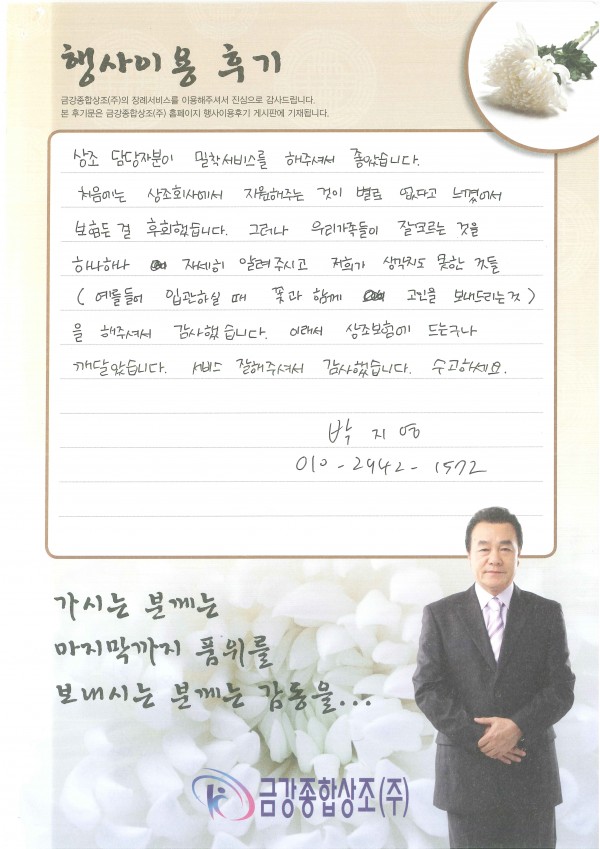 행사이용 후기
금강종합상조(주)의 장례서비스를 이용해주셔서 진심으로 감사드립니다.
본 후기문은 금강종합상조(주) 홈페이지 행사이용후기 게시판에 기재됩니다.
상조 담당자분이 밀착서비스를 해주셔서 좋았습니다.
처음에는 상조회사에서 지원해주는 것이 별로 없다고 느꼈어서
보험든걸 후회했습니다. 그러나 우리가족들이 잘모르는 것을
하나하나 자세히 알려주시고 저희가 생각지도 못한 것들
(예를들어 입관하실 때 꽃과 함께 고인을 보내드리는것)
을 해주셔서 감사했습니다. 이래서 상조보험에 드는구나
깨달았습니다. 서비스 잘해주셔서 감사했습니다. 수고하세요.
박지영
010-2942-1572
가시는 분께는
마지막까지 품위를
보내시는 분께는 감동을...
금강종합상조(주)